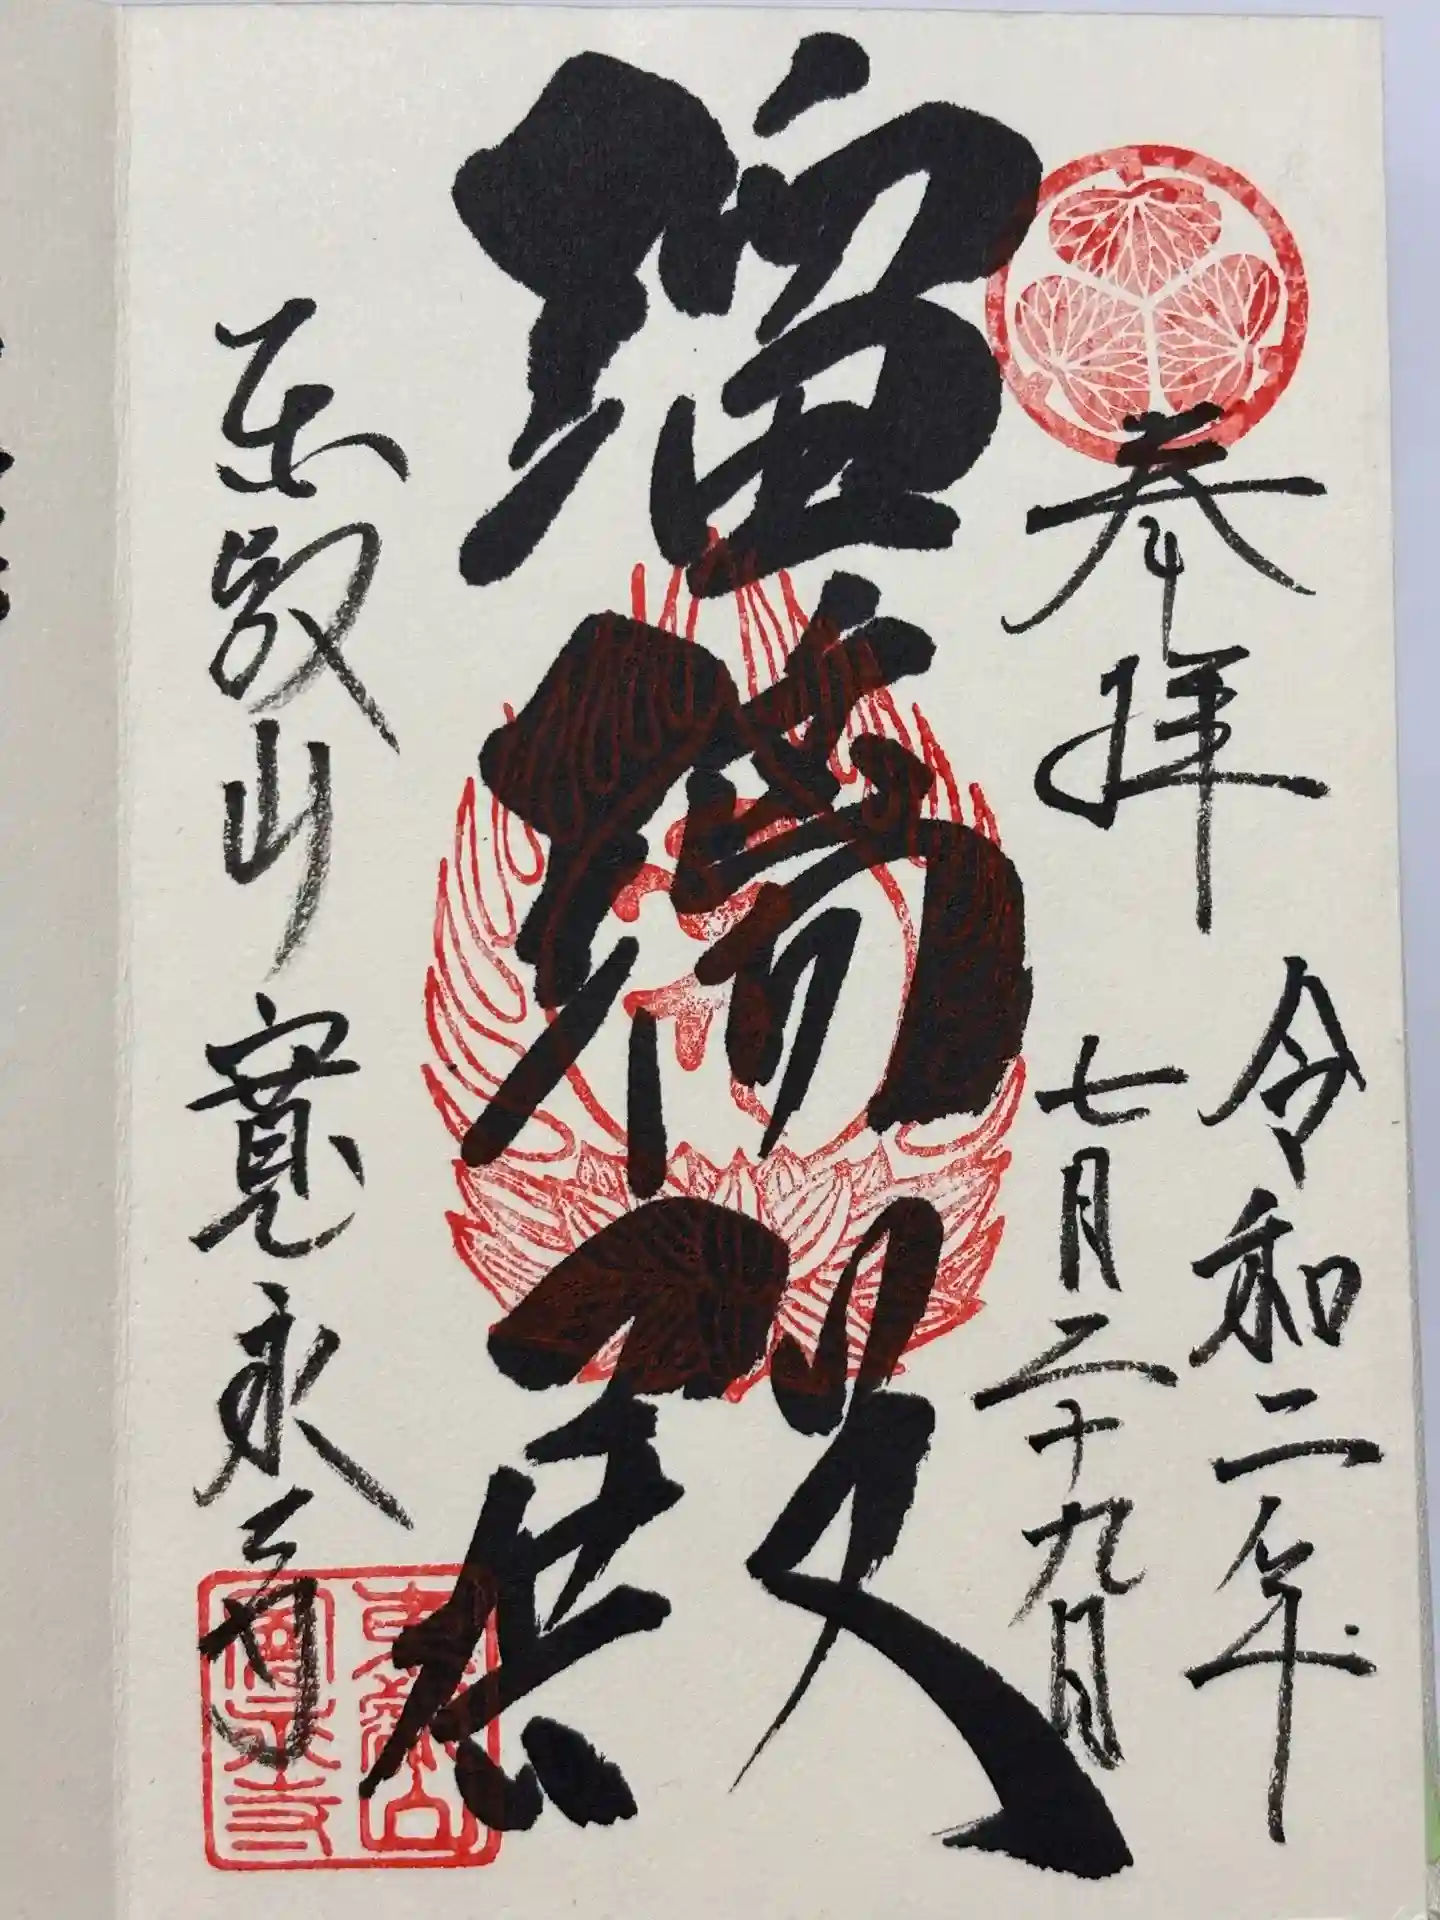 奉拝
令和二年
七月二十九日
瑠璃殿
東叡山寛永寺
東叡山
寛永寺